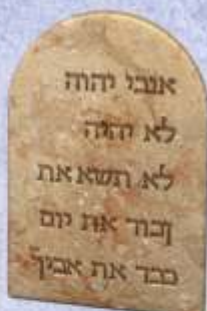 אנכי יהוה
לא יהיה
לא תשא את
זכור את יום
כבד את אביך